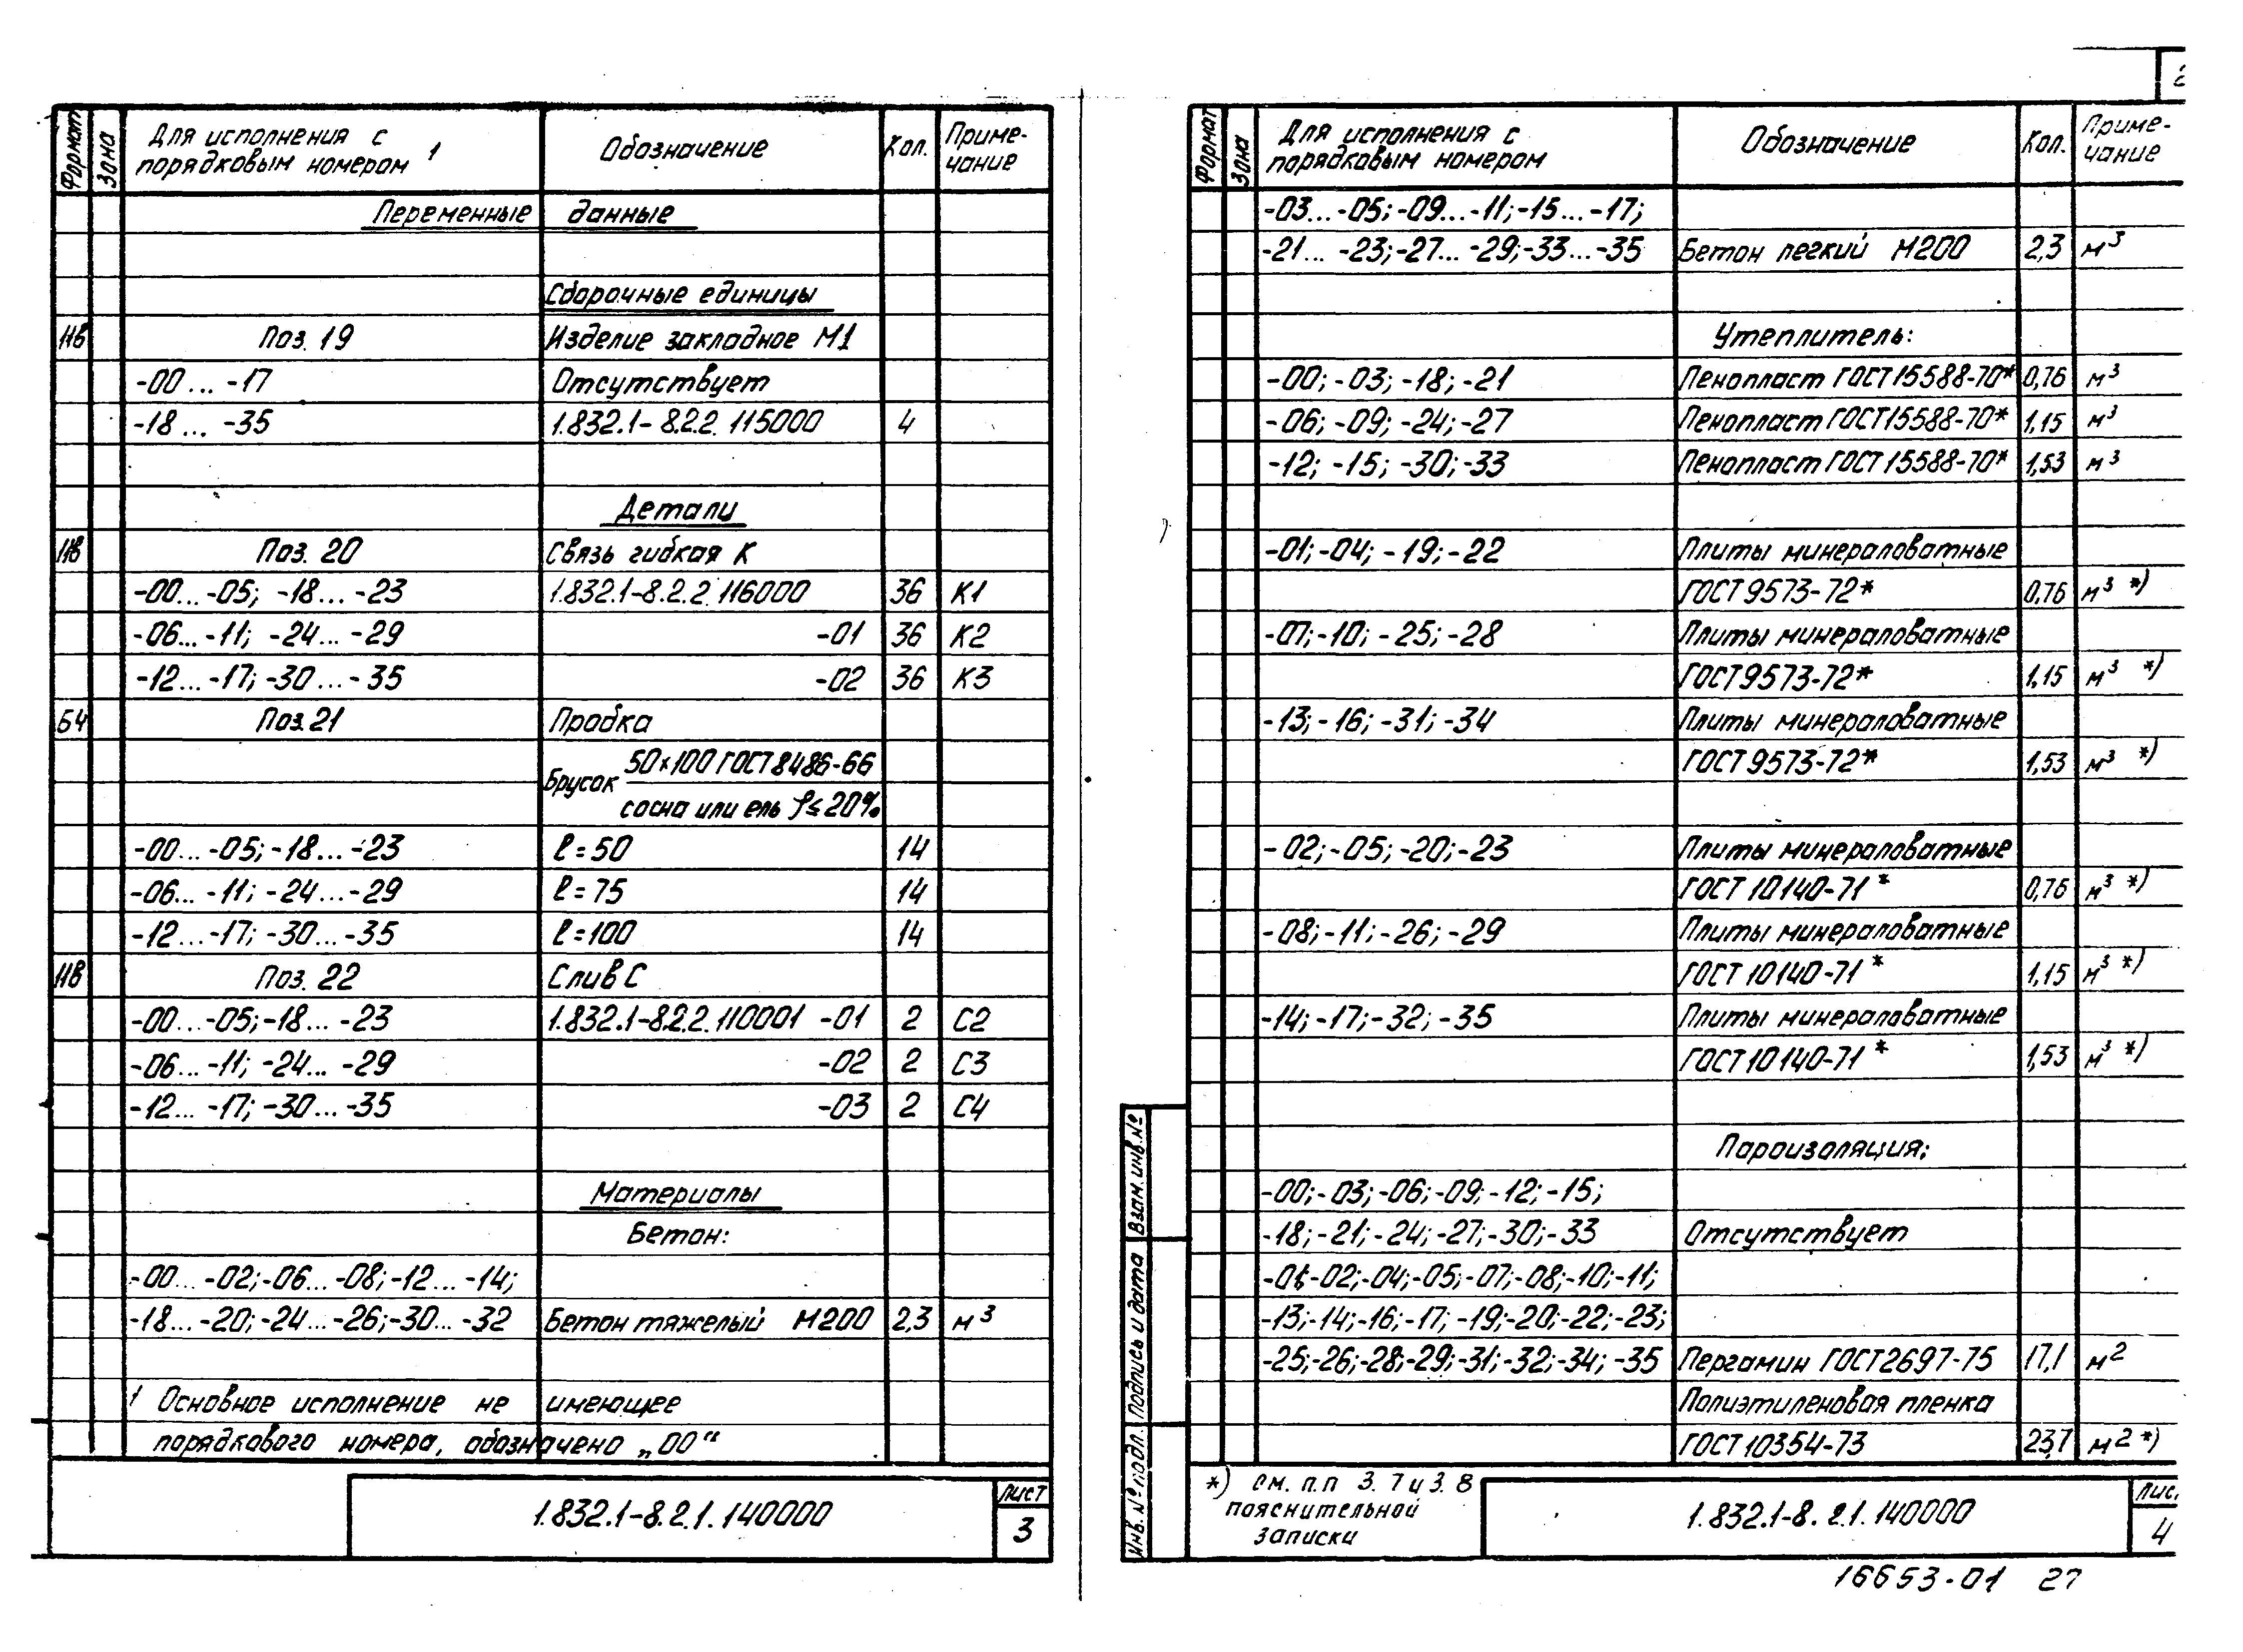 Формат Зона Для исполнения с порядковым номером 1 Обозначение Кол. Приме-чание
Переменные данные
Сборочные единицы
11в Поз. 19 Изделие закладное М1
-00... -17 Отсутствует
-18... -35 1.832.1-8.2.2. 115000 4
Детали
11в Поз. 20 Связь гибкая К
-00...-05; -18...-23 1.832.1-8.2.2. 116000 36 К1
-06...-11; -24...-29 -01 36 К2
-12...-17; -30...-35 -02 36 К3
БЧ Поз. 21 Пробка
Брусок 50×100 ГОСТ 8486-66
сосна или ель ρ≤20%
-00...-05; -18...-23 ℓ=50 14
-06...-11; -24...-29 ℓ=75 14
-12...-17; -30...-35 ℓ=100 14
11в Поз. 22 Слив С
-00...-05; -18...-23 1.832.1-8.2.2. 110001 -01 2 С2
-06...-11; -24...-29 -02 2 С3
-12...-17; -30...-35 -03 2 С4
Материалы
Бетон:
-00...-02; -06...-08; -12...-14;
-18...-20; -24...-26; -30...-32 Бетон тяжелый М200 2,3 м³
1 Основное исполнение не имеющее
порядкового номера, обозначено „00“
1.832.1-8.2.1. 140000 Лист 3
Формат Зона Для исполнения с порядковым номером Обозначение Кол. Приме-чание
-03...-05; -09...-11; -15...-17;
-21...-23; -27...-29; -33...-35 Бетон легкий М200 2,3 м³
Утеплитель:
-00; -03; -18; -21 Пенопласт ГОСТ 15588-70* 0,76 м³
-06; -09; -24; -27 Пенопласт ГОСТ 15588-70* 1,15 м³
-12; -15; -30; -33 Пенопласт ГОСТ 15588-70* 1,53 м³
-01; -04; -19; -22 Плиты минераловатные
ГОСТ 9573-72* 0,76 м³ *)
-07; -10; -25; -28 Плиты минераловатные
ГОСТ 9573-72* 1,15 м³ *)
-13; -16; -31; -34 Плиты минераловатные
ГОСТ 9573-72* 1,53 м³ *)
-02; -05; -20; -23 Плиты минераловатные
ГОСТ 10140-71* 0,76 м³ *)
-08; -11; -26; -29 Плиты минераловатные
ГОСТ 10140-71* 1,15 м³ *)
-14; -17; -32; -35 Плиты минераловатные
ГОСТ 10140-71* 1,53 м³ *)
Пароизоляция:
-00; -03; -06; -09; -12; -15;
-18; -21; -24; -27; -30; -33 Отсутствует
-01; -02; -04; -05; -07; -08; -10; -11;
-13; -14; -16; -17; -19; -20; -22; -23;
-25; -26; -28; -29; -31; -32; -34; -35 Пергамин ГОСТ 2697-75 17,1 м²
Полиэтиленовая пленка
ГОСТ 10354-73 23,7 м² *)
*) см. п.п 3.7 и 3.8
пояснительной
записки
1.832.1-8.2.1. 140000 4
Инв. № подл. Подпись и дата Взам. инв. №
16653-01 27